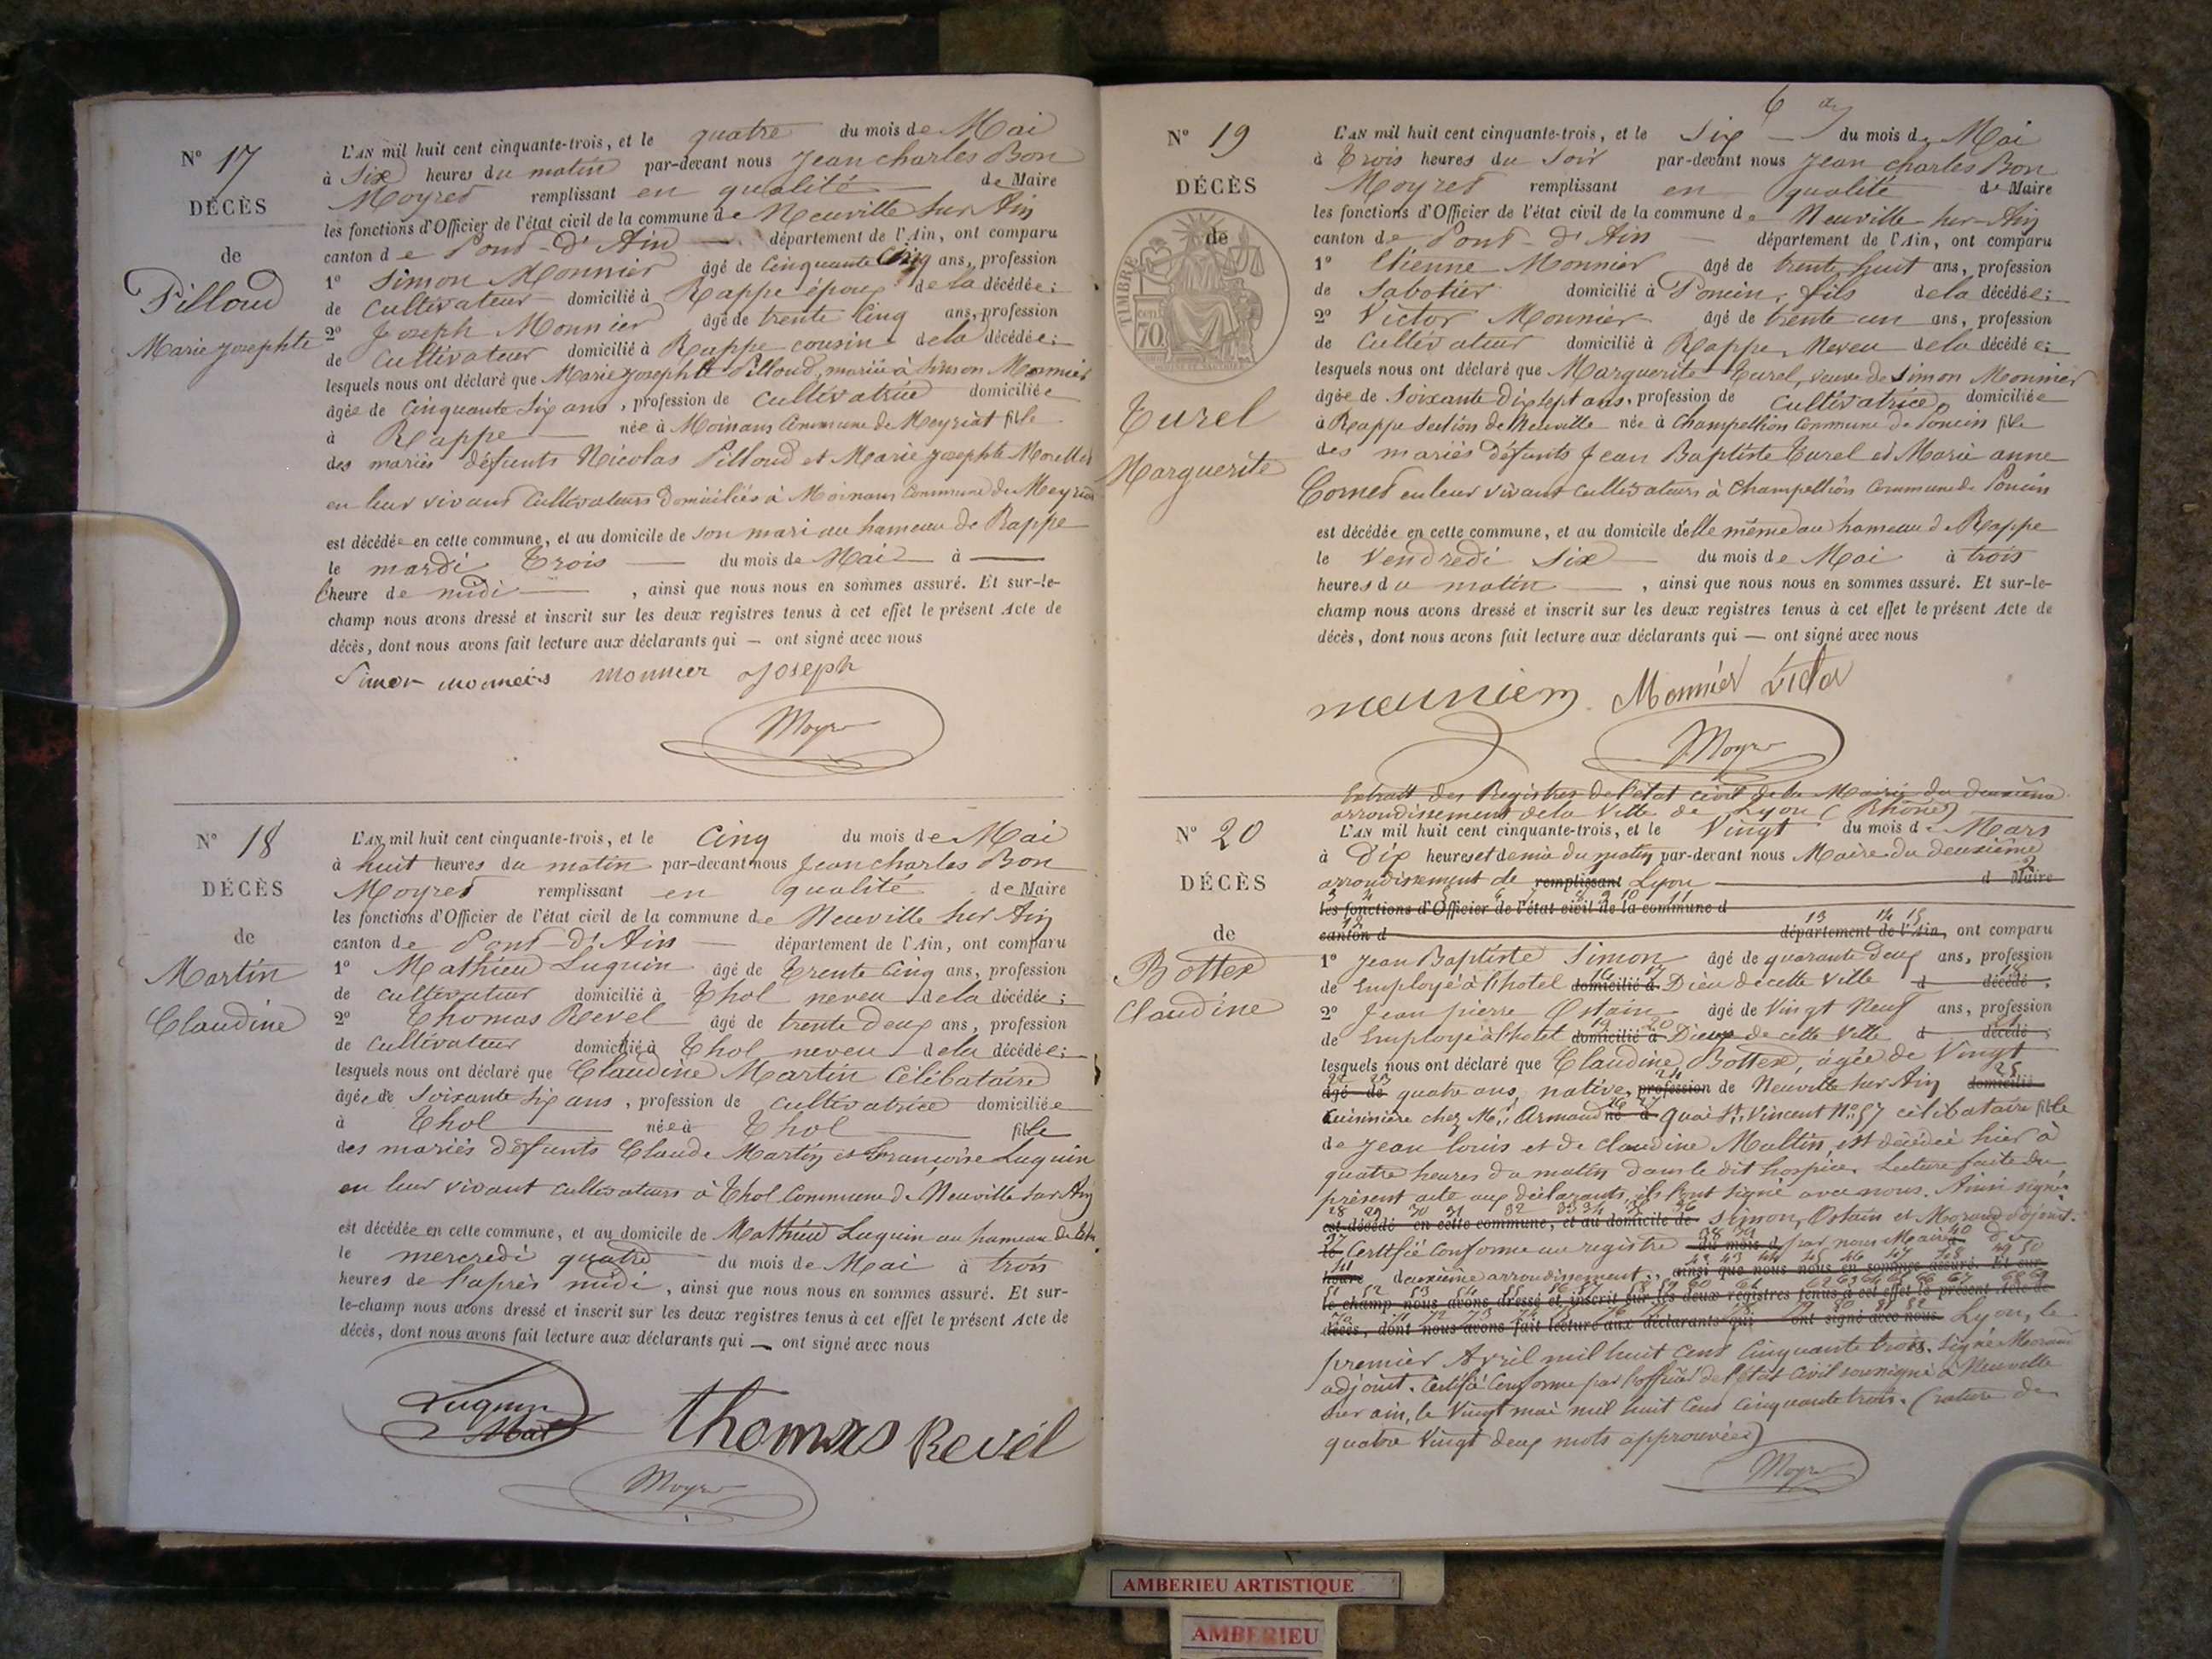 N° 17
DÉCÈS
de
Pilloud
Marie Josephte
L'AN mil huit cent cinquante-trois, et le quatre du mois de Mai
à Six heures du matin par-devant nous Jean charles Bon
Moyret remplissant en qualité de Maire
les fonctions d'Officier de l'état civil de la commune de Neuville sur Ain
canton de Pont-d'Ain département de l'Ain, ont comparu
1° Simon Monnier âgé de Cinquante Cinq ans, profession
de Cultivateur domicilié à Rappe époux de la décédée;
2° Joseph Monnier âgé de trente Cinq ans, profession
de Cultivateur domicilié à Rappe cousin de la décédée;
lesquels nous ont déclaré que Marie Josephte Pilloud, mariée à Simon Monnier
âgée de Cinquante Six ans, profession de Cultivatrice domiciliée
à Rappe née à Moinans Commune de Meyriat fille
des mariés défunts Nicolas Pilloud et Marie Josephte
en leur vivant Cultivateurs domiciliés à Moinans Commune de Meyriat
est décédée en cette commune, et au domicile de son mari au hameau de Rappe
le mardi Trois du mois de Mai à
l'heure de midi, ainsi que nous nous en sommes assuré. Et sur-le-
champ nous avons dressé et inscrit sur les deux registres tenus à cet effet le présent Acte de
décès, dont nous avons fait lecture aux déclarants qui — ont signé avec nous
Simon monnier monnier Joseph
Moyret
N° 18
DÉCÈS
de
Martin
Claudine
L'AN mil huit cent cinquante-trois, et le Cinq du mois de Mai
à huit heures du matin par-devant nous Jean charles Bon
Moyret remplissant en qualité de Maire
les fonctions d'Officier de l'état civil de la commune de Neuville sur Ain
canton de Pont-d'Ain département de l'Ain, ont comparu
1° Mathieu Luquin âgé de Trente Cinq ans, profession
de cultivateur domicilié à Thol neveu de la décédée;
2° Thomas Revel âgé de trente Deux ans, profession
de Cultivateur domicilié à Thol neveu de la décédée;
lesquels nous ont déclaré que Claudine Martin Célibataire
âgée de Soixante Six ans, profession de cultivatrice domiciliée
à Thol née à Thol fille
des mariés défunts Claude Martin et Françoise Luquin
en leur vivant cultivateurs à Thol Commune de Neuville sur Ain
est décédée en cette commune, et au domicile de Mathieu Luquin au hameau de Thol
le mercredi quatre du mois de Mai à trois
heures de l'après midi, ainsi que nous nous en sommes assuré. Et sur-
le-champ nous avons dressé et inscrit sur les deux registres tenus à cet effet le présent Acte de
décès, dont nous avons fait lecture aux déclarants qui — ont signé avec nous
Luquin
Mat
thomas Revel
Moyret
6
N° 19
DÉCÈS
de
TIMBRE
70
Turel
Marguerite
L'AN mil huit cent cinquante-trois, et le Six du mois de Mai
à Trois heures du Soir par-devant nous Jean charles Bon
Moyret remplissant en qualité de Maire
les fonctions d'Officier de l'état civil de la commune de Neuville-sur-Ain
canton de Pont-d'Ain département de l'Ain, ont comparu
1° Etienne Monnier âgé de trente huit ans, profession
de Sabotier domicilié à Poncin, fils de la décédée;
2° Victor Monnier âgé de trente un ans, profession
de Cultivateur domicilié à Rappe, Neveu de la décédée;
lesquels nous ont déclaré que Marguerite Turel, veuve de Simon Monnier
âgée de Soixante Dix sept ans, profession de Cultivatrice, domiciliée
à Rappe section de Neuville née à Champeillon Commune de Poncin fille
des mariés défunts Jean Baptiste Turel et Marie anne
Cornet en leur vivant cultivateurs à Champeillon Commune de Poncin
est décédée en cette commune, et au domicile d'elle même au hameau de Rappe
le Vendredi Six du mois de Mai à trois
heures du matin, ainsi que nous nous en sommes assuré. Et sur-le-
champ nous avons dressé et inscrit sur les deux registres tenus à cet effet le présent Acte de
décès, dont nous avons fait lecture aux déclarants qui — ont signé avec nous
meuniern Monnier Victor
Moyret
N° 20
DÉCÈS
de
Bottex
Claudine
Extrait des Registres de l'état civil de la Mairie du deuxième
arrondissement de la Ville de Lyon (Rhône)
L'AN mil huit cent cinquante-trois, et le Vingt du mois de Mars
à Dix heures et demie du matin par-devant nous Maire du deuxième
arrondissement de remplissant Lyon d Maire
les fonctions d'Officier de l'état civil de la commune d
canton d département de l'Ain, ont comparu
1° Jean Baptiste Simon âgé de quarante deux ans, profession
de Employé à l'hotel domicilié à Dieu de cette Ville d décédé;
2° Jean pierre Ostain âgé de Vingt Neuf ans, profession
de Employé à l'hotel domicilié à Dieu de cette Ville d décédé;
lesquels nous ont déclaré que Claudine Bottex, âgée de Vingt
âgé de quatre ans, native, profession de Neuville sur Ain domicilié
Cuisinière chez Mr. Armand né à quai St. Vincent N° 57 célibataire fille
de Jean louis et de Claudine Multin, est décédée hier à
quatre heures du matin dans le dit hospice. Lecture faite du
présent acte aux déclarants, ils l'ont signé avec nous. Ainsi signé:
est décédé en cette commune, et au domicile de Simon, Ostain et Morand adjoint.
le Certifié Conforme au registre du mois d par nous Maire du
heure deuxième arrondissement, ainsi que nous nous en sommes assuré. Et sur-
le-champ nous avons dressé et inscrit sur les deux registres tenus à cet effet le présent Acte de
décès, dont nous avons fait lecture aux déclarants qui ont signé avec nous Lyon, le
premier Avril mil huit Cent Cinquante trois. signé Morand
adjoint. Certifié Conforme par l'officier de l'état Civil soussigné à Neuville
sur ain, le Vingt mai mil huit Cent Cinquante trois. (rature de
quatre Vingt deux mots approuvée)
Moyret
AMBERIEU ARTISTIQUE
AMBERIEU